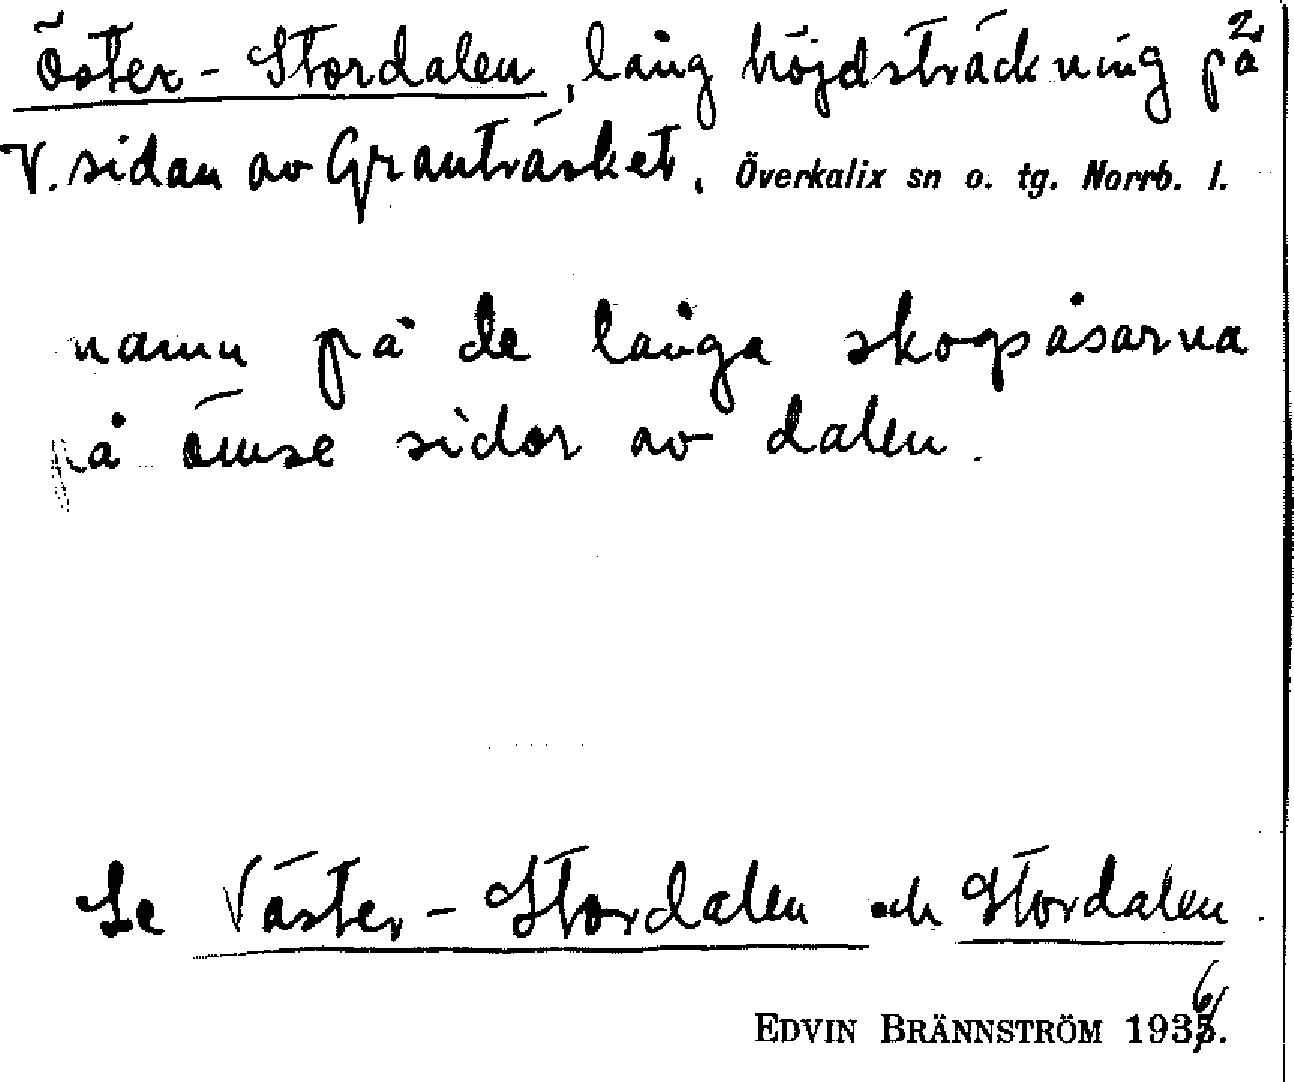 Öster-Stordalen, lång höjdsträckning på 2
V. sidan av Granträsket. Överkalix sn o. tg. Norrb. l.
namn på de långa skogsåsarna
på ömse sidor av dalen.
Se Väster-Stordalen och Stordalen.
EDVIN BRÄNNSTRÖM 1936.